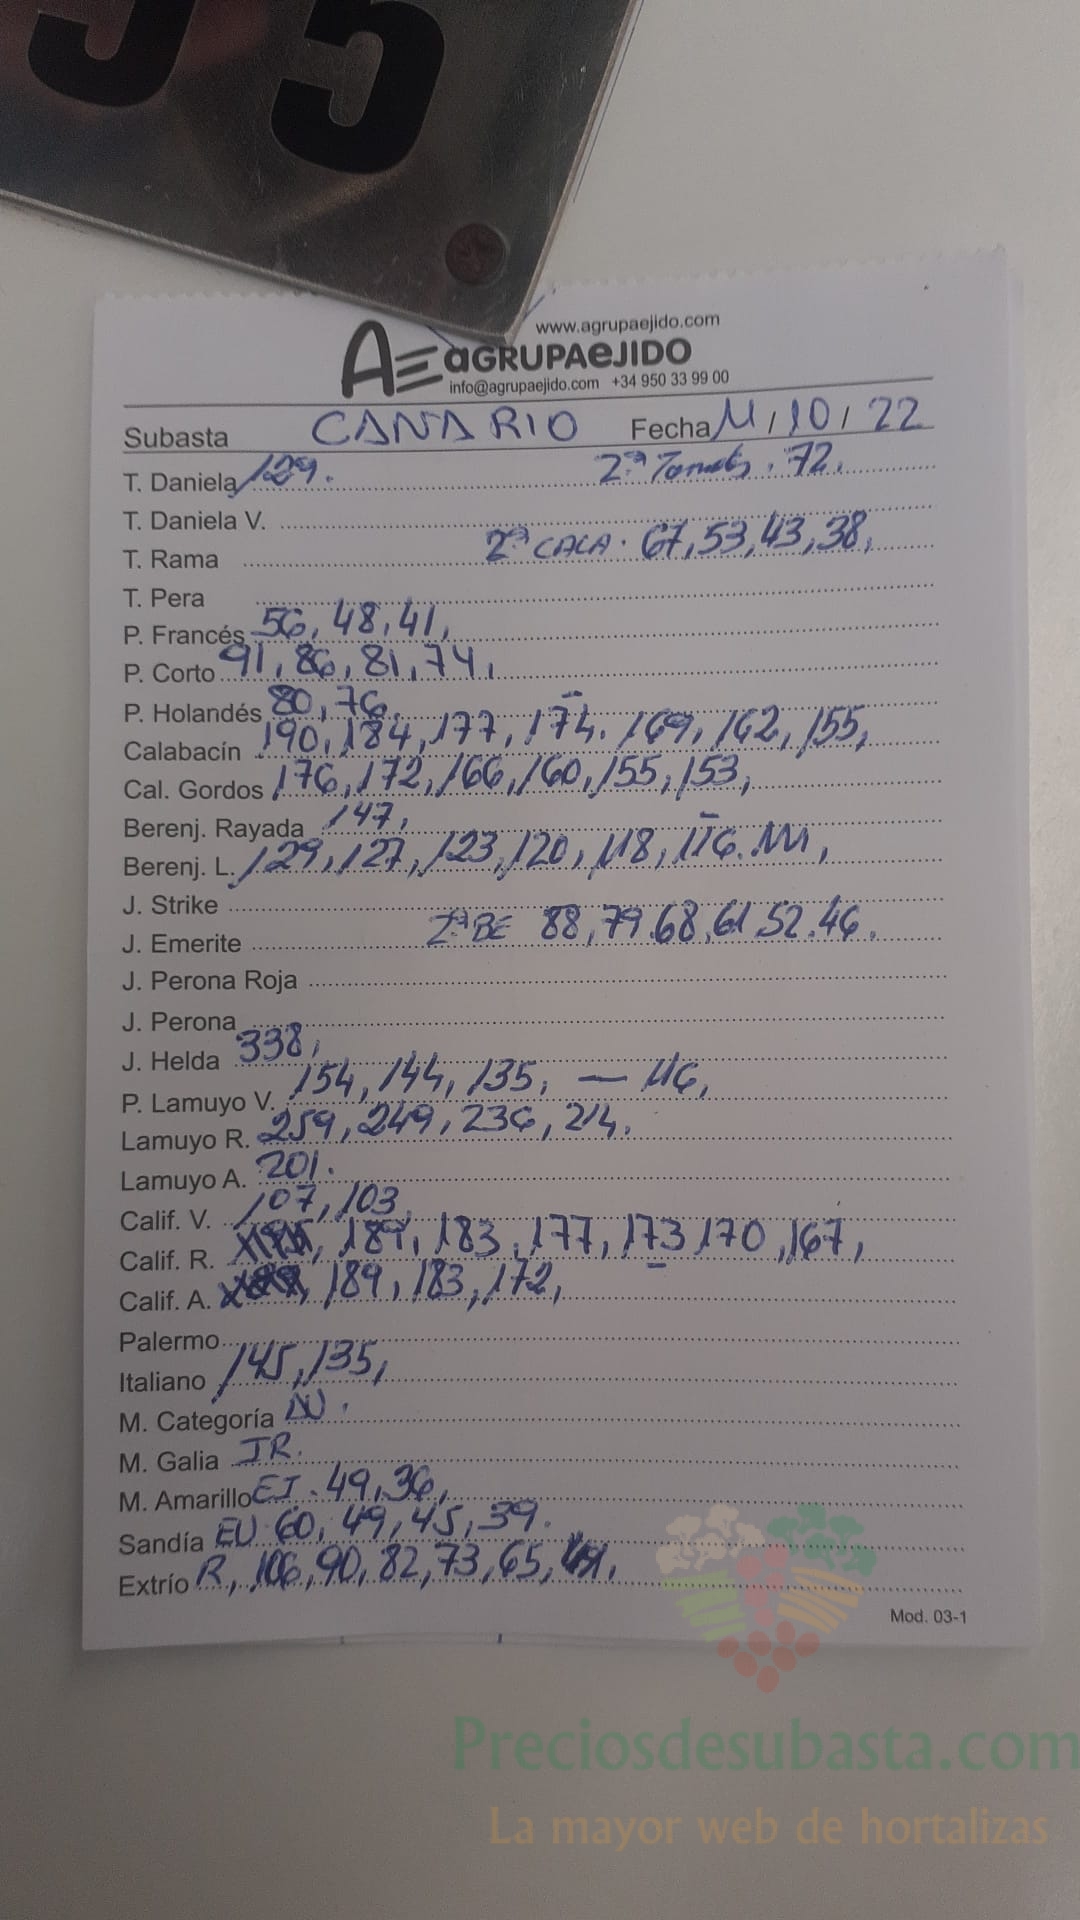 55
www.agrupaejido.com
AE aGRUPAeJIDO
info@agrupaejido.com +34 950 33 99 00
Subasta CANARIO Fecha 11/10/22
T. Daniela 129. 2ª Tomate. 72.
T. Daniela V.
T. Rama 2ª CALA. 67, 53, 43, 38,
T. Pera
P. Francés 56, 48, 41,
P. Corto 91, 86, 81, 74,
P. Holandés 80, 76,
Calabacín 190, 184, 177, 174. 169, 162, 155,
Cal. Gordos 176, 172, 166, 160, 155, 153,
Berenj. Rayada 147,
Berenj. L. 129, 127, 123, 120, 118, 116. 111,
J. Strike
J. Emerite 2ª BE 88, 79. 68, 61. 52. 46.
J. Perona Roja
J. Perona
J. Helda 338,
P. Lamuyo V. 154, 144, 135, — 116,
Lamuyo R. 259, 249, 236, 214.
Lamuyo A. 201.
Calif. V. 107, 103,
Calif. R. 189, 183, 177, 173 170, 167,
Calif. A. 189, 183, 172,
Palermo
Italiano 145, 135,
M. Categoría
M. Galia
M. Amarillo EJ. 49, 36,
Sandía EU 60, 49, 45, 39.
Extrío R, 106, 90, 82, 73, 65,
Mod. 03-1
Preciosdesubasta.com
La mayor web de hortalizas